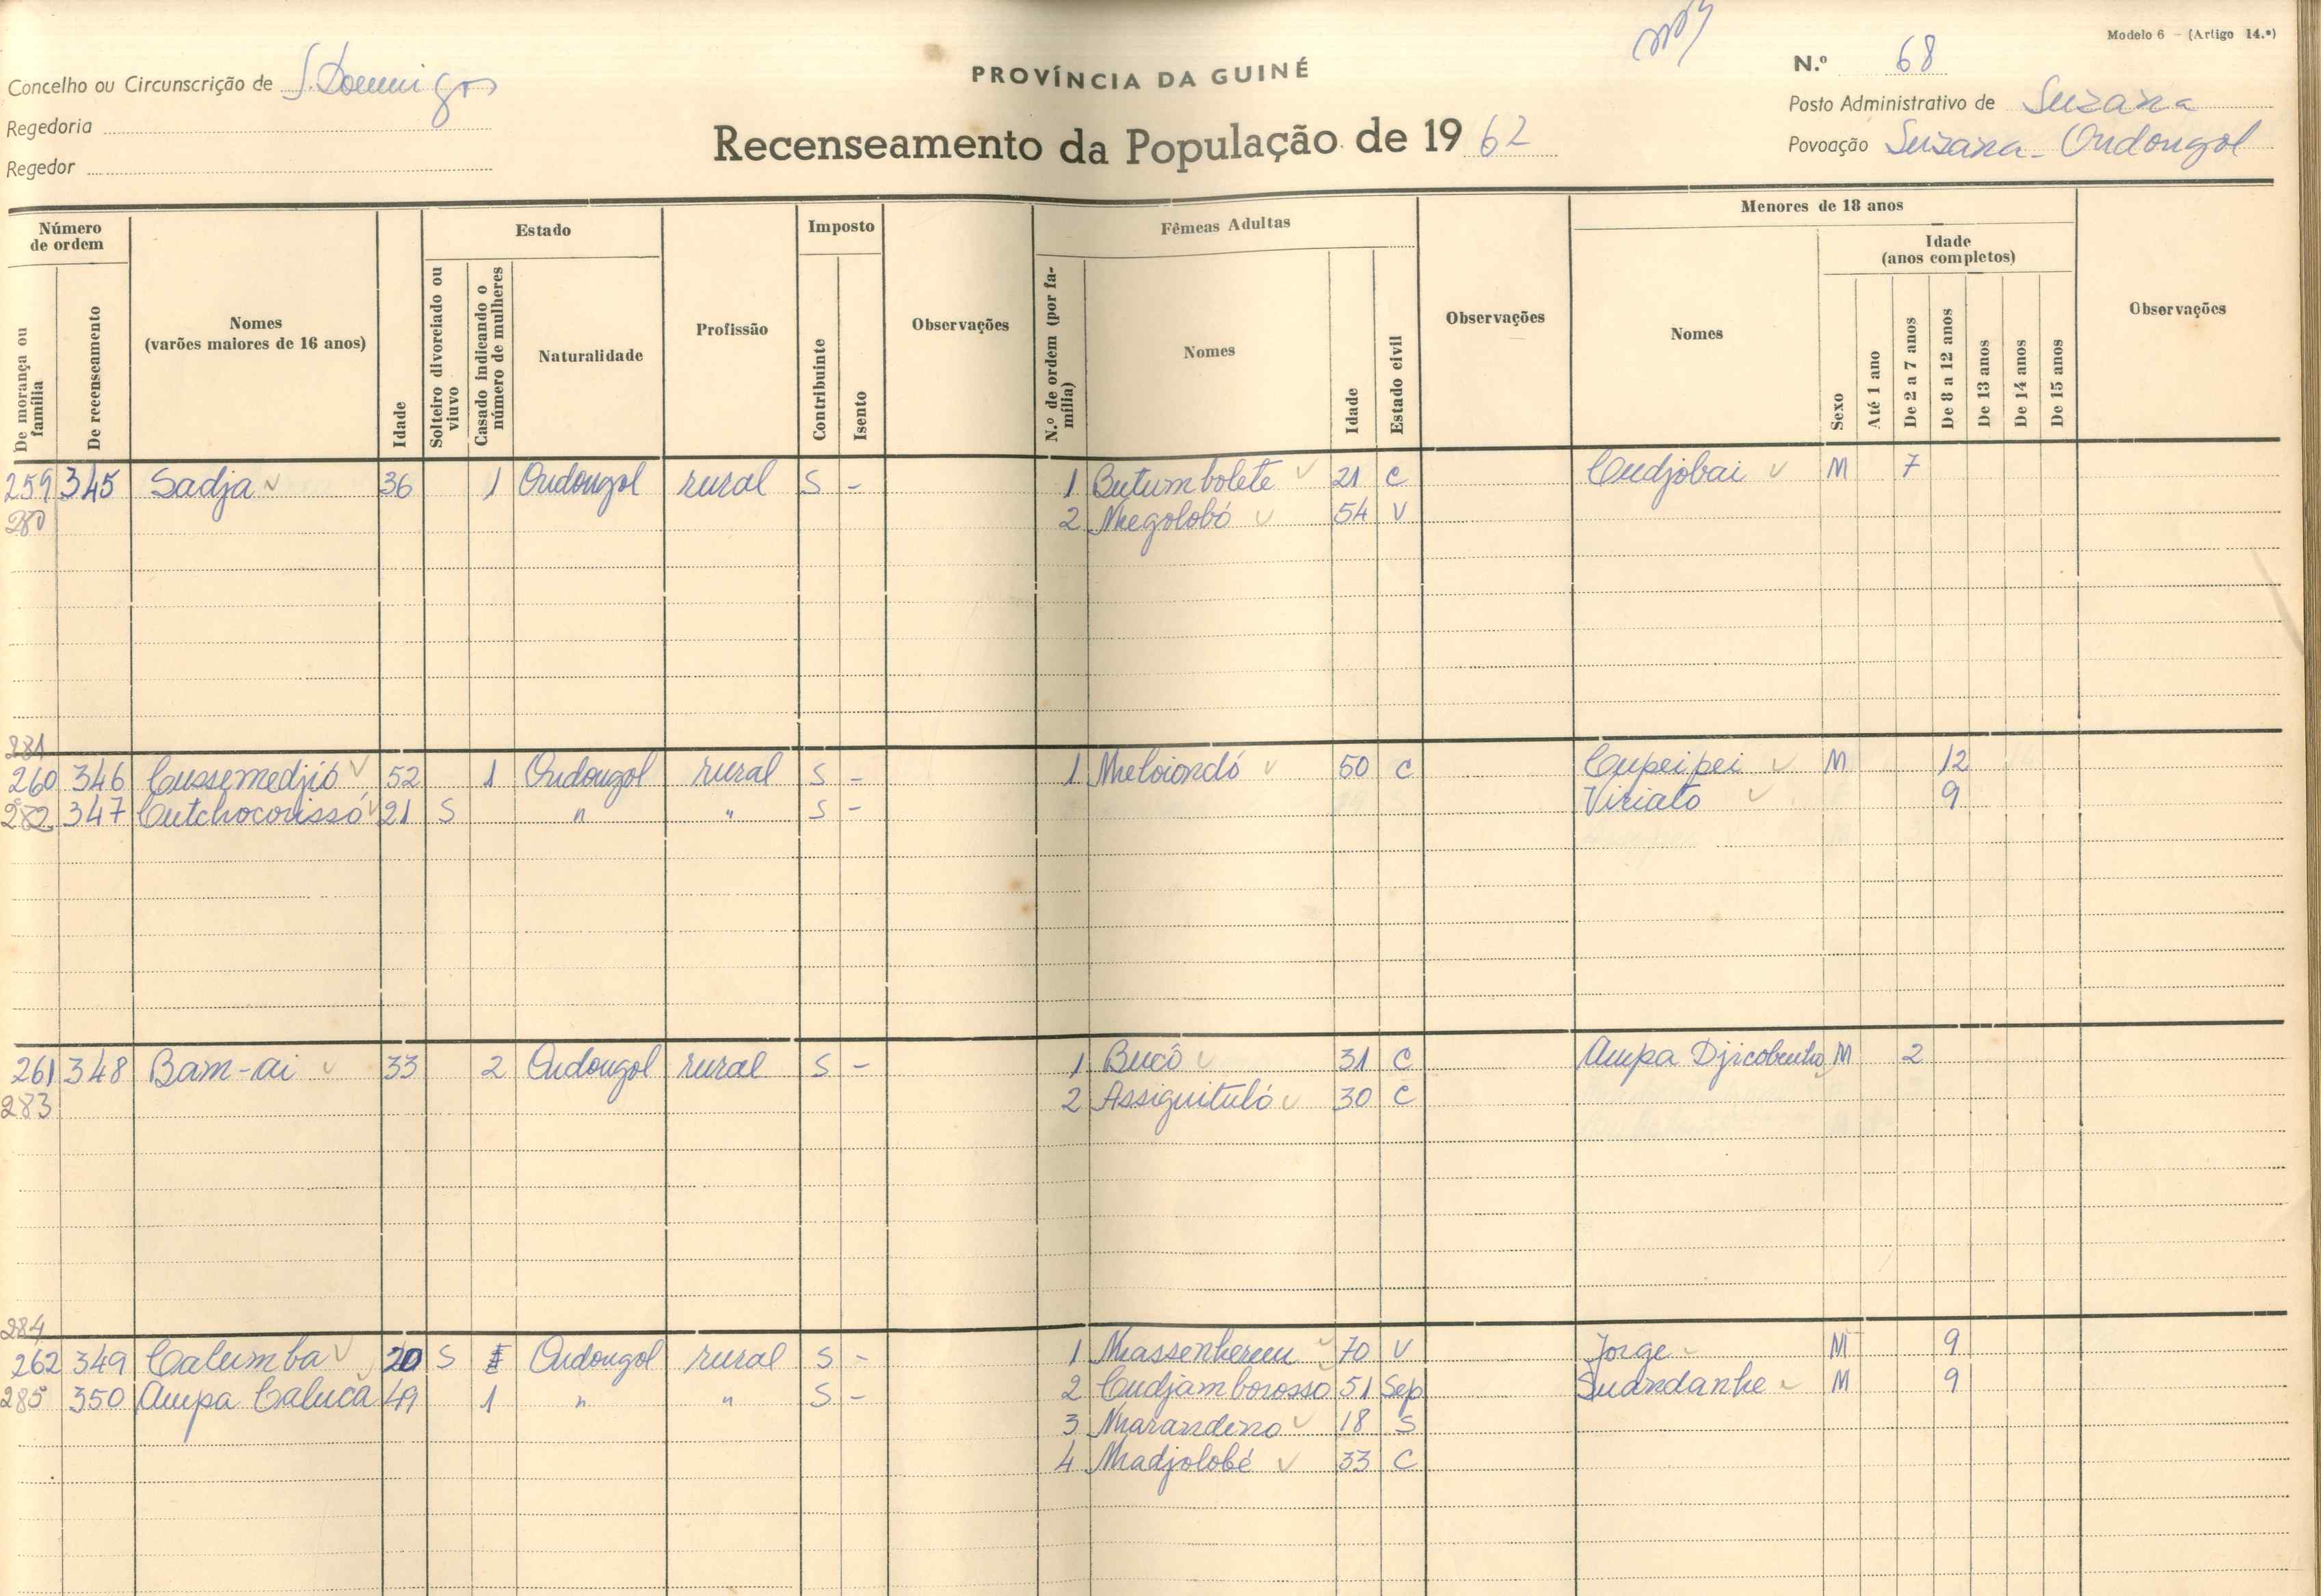 Modelo 6 - (Artigo 14.º)
PROVÍNCIA DA GUINÉ
N.º 68
Concelho ou Circunscrição de S. Domingos
Posto Administrativo de Suzana
Regedoria
Recenseamento da População de 1962
Povoação Suzana - Ondongol
Regedor
Número de ordem
De morança ou família
De recenseamento
Nomes (varões maiores de 16 anos)
Idade
Estado
Solteiro divorciado ou viuvo
Casado indicando o número de mulheres
Naturalidade
Profissão
Imposto
Contribuinte
Isento
Observações
Fêmeas Adultas
N.º de ordem (por família)
Nomes
Idade
Estado civil
Observações
Menores de 18 anos
Nomes
Sexo
Idade (anos completos)
Até 1 ano
De 2 a 7 anos
De 8 a 12 anos
De 13 anos
De 14 anos
De 15 anos
Observações
259 345 Sadja 36 1 Ondongol rural S - 1 Butumbolete 21 C Cudjobai M 7
280 2 Megolobó 54 V
281
260 346 Cussemedjió 52 1 Ondongol rural S - 1 Meloiondó 50 C Cupeipei M 12
282 347 Cutchocorissó 21 S " " S - Viriato 9
261 348 Bam-ai 33 2 Ondongol rural S - 1 Bucô 31 C Ampa Djicobenho M 2
283 2 Assiguituló 30 C
284
262 349 Calumba 20 S Ondongol rural S - 1 Massenhereu 70 V Jorge M 9
285 350 Ampa Calucá 49 1 " " S - 2 Cudjamborosso 51 Sep Suandanhe M 9
3 Marandeno 18 S
4 Madjolobé 33 C